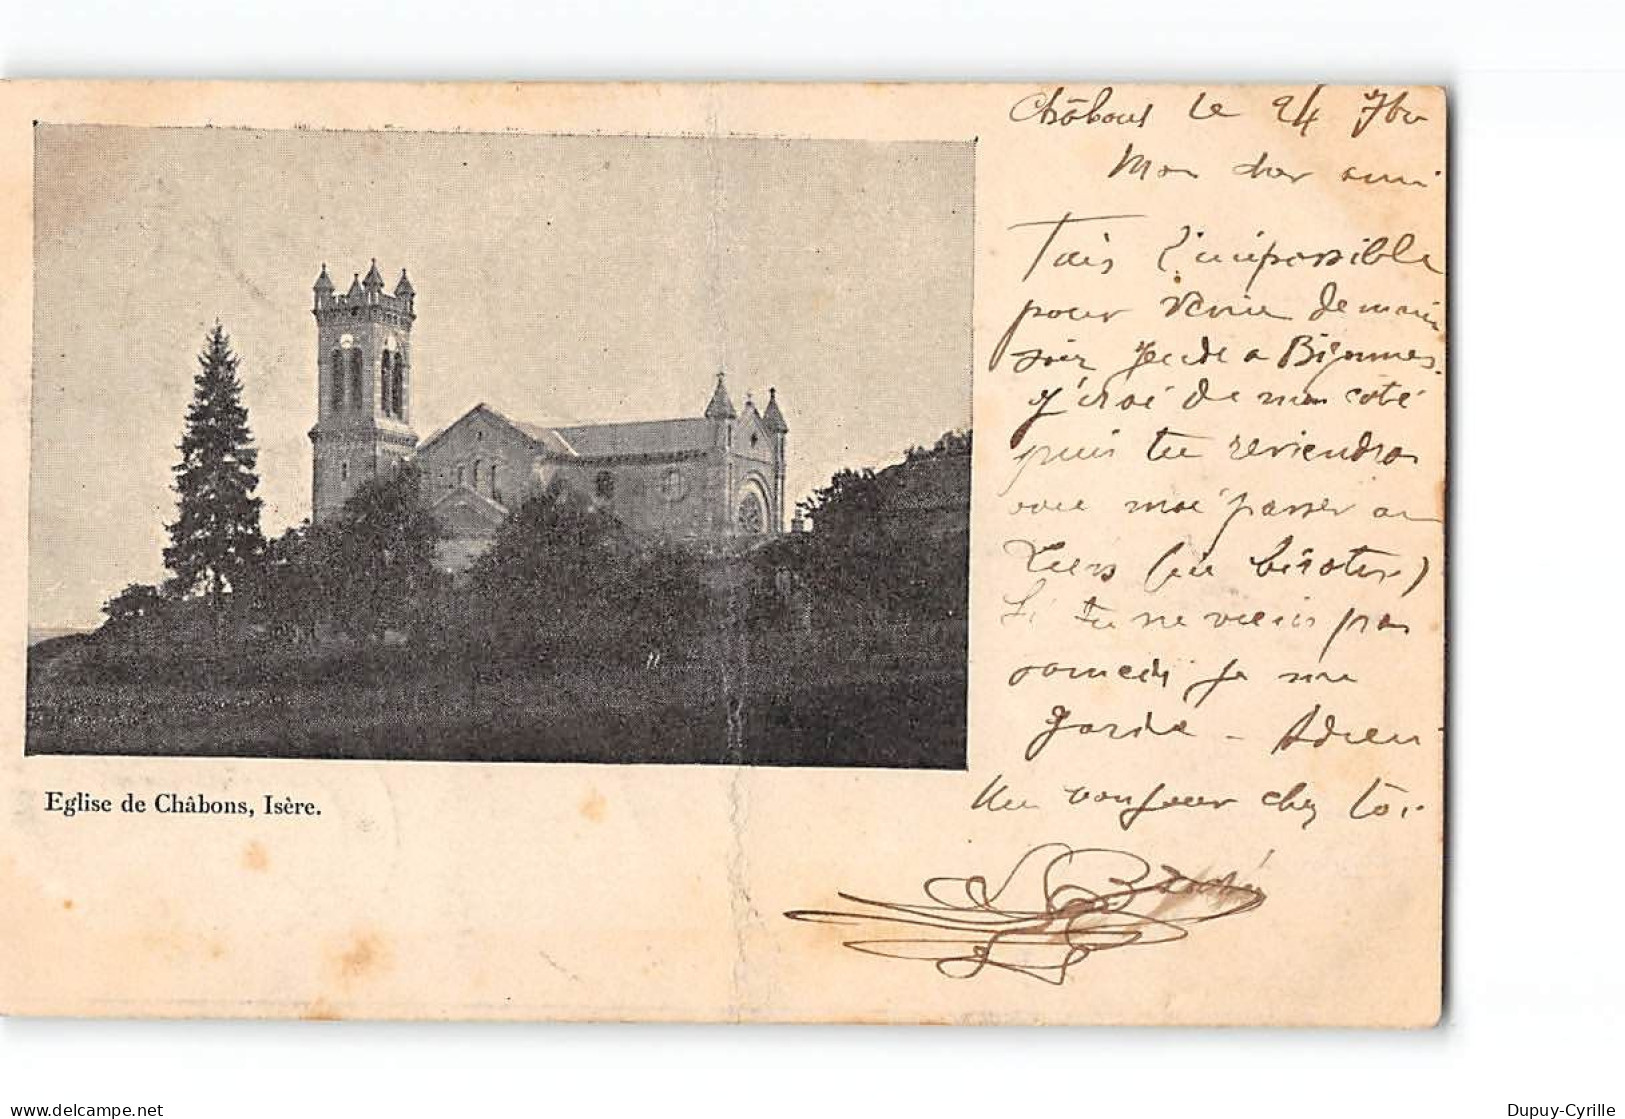 Châbons le 24 7bre
Mon cher ami
Fais l'impossible
pour venir demain
soir jeudi a
J'irai de mon coté
puis tu reviendras
avec moi passer
Si tu ne viens pas
samedi je
garde - Adieu
Un bonjour chez toi
Eglise de Châbons, Isère.
delcampe.net
Dupuy-Cyrille